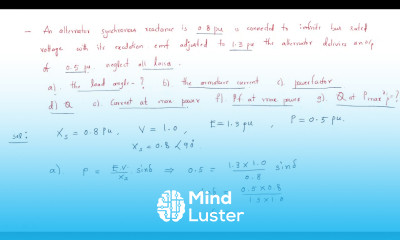 - An alternator synchronous reactance is 0.8 pu is connected to infinite bus rated
voltage with its excitation emf adjusted to 1.3 pu the alternator delivers an o/p
of 0.5 pu. neglect all losses.
a). the load angle - ? b) the armature current c). power factor
d) Q e). Current at max power f) Pf at max power g). Q at Pmax
Sol:
Xs = 0.8 Pu, V = 1.0, E = 1.3 pu, P = 0.5 pu.
Xs = 0.8 <90
a) P = E.V/Xs sinδ ⇒ 0.5 = 1.3 x 1.0/0.8 sinδ
0.5 x 0.8/1.3 x 1.0
Mind
Luster